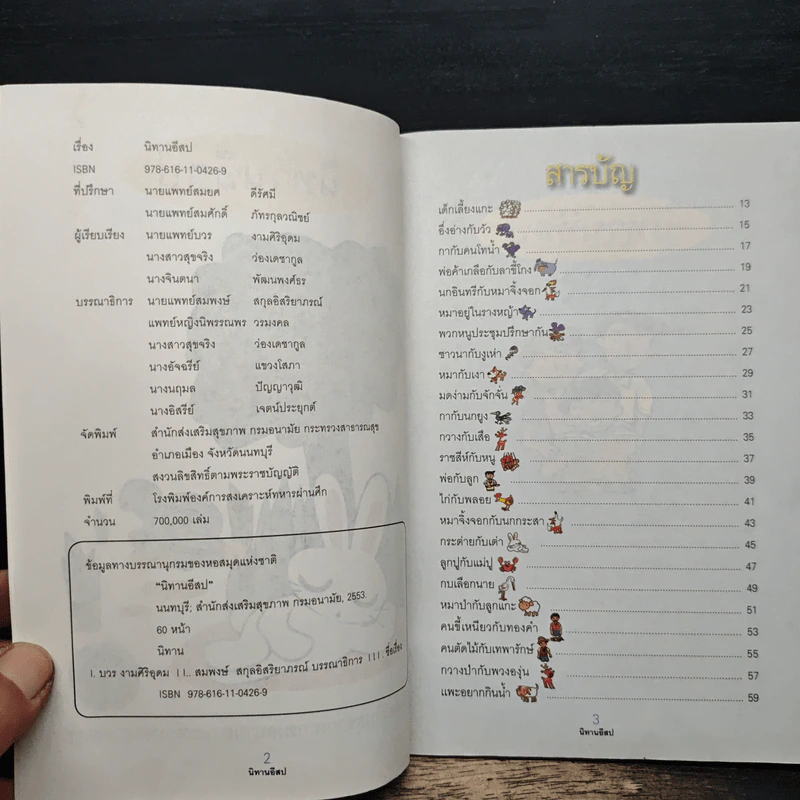 เรื่อง นิทานอีสป
ISBN 978-616-11-0426-9
ที่ปรึกษา นายแพทย์สมยศ ดีรัศมี
นายแพทย์สมศักดิ์ ภัทรกุลวณิชย์
ผู้เรียบเรียง นายแพทย์บวร งามศิริอุดม
นางสาวสุขจริง ว่องเดชากูล
นางจินตนา พัฒนพงศ์ธร
บรรณาธิการ นายแพทย์สมพงษ์ สกุลอิสริยาภรณ์
แพทย์หญิงนิพรรณพร วรมงคล
นางสาวสุขจริง ว่องเดชากูล
นางอัจฉรีย์ แขวงโสภา
นางนฤมล ปัญญาวุฒิ
นางอิสรีย์ เจตน์ประยุกต์
จัดพิมพ์ สำนักส่งเสริมสุขภาพ กรมอนามัย กระทรวงสาธารณสุข
อำเภอเมือง จังหวัดนนทบุรี
สงวนลิขสิทธิ์ตามพระราชบัญญัติ
พิมพ์ที่ โรงพิมพ์องค์การสงเคราะห์ทหารผ่านศึก
จำนวน 700,000 เล่ม
ข้อมูลทางบรรณานุกรมของหอสมุดแห่งชาติ
"นิทานอีสป"
นนทบุรี; สำนักส่งเสริมสุขภาพ กรมอนามัย, 2553.
60 หน้า
นิทาน
I. บวร งามศิริอุดม II.. สมพงษ์ สกุลอิสริยาภรณ์ บรรณาธิการ III. ชื่อเรื่อง
ISBN 978-616-11-0426-9
2
นิทานอีสป
สารบัญ
เด็กเลี้ยงแกะ 13
อึ่งอ่างกับวัว 15
กากับคนโทน้ำ 17
พ่อค้าเกลือกับลาขี้โกง 19
นกอินทรีกับหมาจิ้งจอก 21
หมาอยู่ในรางหญ้า 23
พวกหนูประชุมปรึกษากัน 25
ชาวนากับงูเห่า 27
หมากับเงา 29
มดง่ามกับจักจั่น 31
กากับนกยูง 33
กวางกับเสือ 35
ราชสีห์กับหนู 37
พ่อกับลูก 39
ไก่กับพลอย 41
หมาจิ้งจอกกับนกกระสา 43
กระต่ายกับเต่า 45
ลูกปูกับแม่ปู 47
กบเลือกนาย 49
หมาป่ากับลูกแกะ 51
คนขี้เหนียวกับทองคำ 53
คนตัดไม้กับเทพารักษ์ 55
กวางป่ากับพวงองุ่น 57
แพะอยากกินน้ำ 59
3
นิทานอีสป